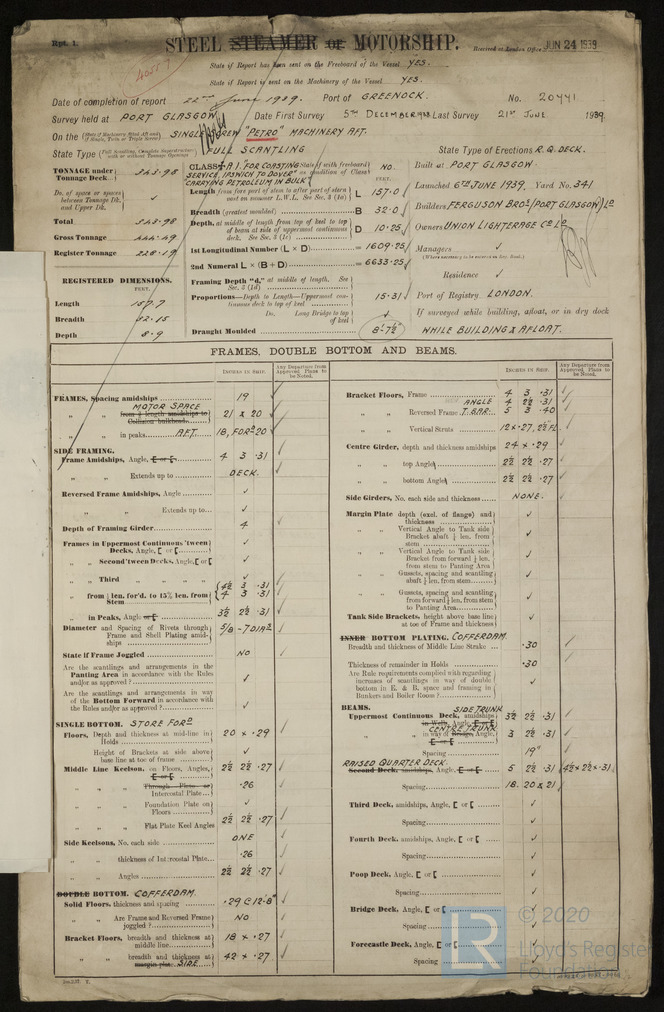 Rpt. 1.
STEEL STEAMER OR MOTORSHIP.
Received in London Office JUN 24 1939
State if Report has been sent on the Freeboard of the Vessel YES.
State if Report is sent on the Machinery of the Vessel YES.
Date of completion of report 22nd June 1939. Port of GREENOCK. No. 20441
Survey held at PORT GLASGOW Date First Survey 5TH DECEMBER 1938 Last Survey 21ST JUNE 1939
On the SINGLE SCREW "PETRO" MACHINERY AFT.
State Type FULL SCANTLING State Type of Erections R.Q. DECK.
TONNAGE under Tonnage Deck
Do. of space or spaces between Tonnage Dk. and Upper Dk. ✓
Total
Gross Tonnage
Register Tonnage
REGISTERED DIMENSIONS.
FEET.
Length 157.7
Breadth 32.15
Depth 8.9
CLASS +A.1. "FOR COASTING SERVICE, IPSWICH TO DOVER" CARRYING PETROLEUM IN BULK
State if with freeboard as condition of Class NO.
FEET.
Length from fore part of stem to after part of stern post on summer L.W.L. See Sec. 3 (1a) L 157.0
Breadth (greatest moulded) B 32.0
Depth, at middle of length from top of keel to top of beam at side of uppermost continuous deck. See Sec. 3 (1c) D 10.25
1st Longitudinal Number (L × D) = 1609.25
2nd Numeral L × (B + D) = 6633.25
Framing Depth "d," at middle of length. See Sec. 3 (1d)
Proportions—Depth to Length—Uppermost continuous deck to top of keel 15.31
Do. Long Bridge to top of keel ✓
Draught Moulded 8'-7½"
Built at PORT GLASGOW.
Launched 6TH JUNE 1939, Yard No. 341
Builders FERGUSON BROS (PORT GLASGOW) LD
Owners UNION LIGHTERAGE CO. LD
Managers ✓
Residence ✓
Port of Registry LONDON.
If surveyed while building, afloat, or in dry dock
WHILE BUILDING & AFLOAT.
FRAMES, DOUBLE BOTTOM AND BEAMS.
INCHES IN SHIP. Any Departure from Approved Plans to be Noted.
FRAMES, Spacing amidships 19
MOTOR SPACE
" " from ⅗ length amidships to Collision bulkhead 21 & 20
" " in peaks AFT. 18, FORD 20
SIDE FRAMING.
Frame Amidships, Angle, [ or [ 4 3 .31
" " Extends up to DECK.
Reversed Frame Amidships, Angle ✓
" " Extends up to ✓
Depth of Framing Girder 4
Frames in Uppermost Continuous 'tween Decks, Angle, [ or [ ✓
" " Second 'tween Decks, Angle, [ or [ ✓
" " Third " " " " ✓
" " from ⅕ len. for'd. to 15% len. from Stem 4½ 3 .31
4 3 .31
" " in Peaks, Angle or [ 3½ 2½ .31
Diameter and Spacing of Rivets through Frame and Shell Plating amidships 5/8 - 7 DIAS
State if Frame Joggled NO
Are the scantlings and arrangements in the Panting Area in accordance with the Rules and/or as approved? ✓
Are the scantlings and arrangements in way of the Bottom Forward in accordance with the Rules and/or as approved? ✓
SINGLE BOTTOM. STORE FORD
Floors, Depth and thickness at mid-line in Holds 20 × .29
" Height of Brackets at side above base line at toe of frame ✓
Middle Line Keelson, on Floors, Angles, [ or [ 2½ 2½ .27
" " Through Plate or Intercostal Plate .26
" " Foundation Plate on Floors ✓
" " Flat Plate Keel Angles 2½ 2½ .27
Side Keelsons, No. each side ONE
" " thickness of Intercostal Plate .26
" " Angles 2½ 2½ .27
DOUBLE BOTTOM. COFFERDAM.
Solid Floors, thickness and spacing .29 @ 12'-8"
" " Are Frame and Reversed Frame joggled? NO
Bracket Floors, breadth and thickness at middle line 18 × .27
" " breadth and thickness at margin plate SIDE 42 × .27
Bracket Floors, Frame 4 3 .31
ANGLE 4 2½ .31
" " Reversed Frame T.BAR. 5 3 .40
" " Vertical Struts 12 × .27, 2½ FL.
Centre Girder, depth and thickness amidships 24 × .29
" " top Angle 2½ 2½ .27
" " bottom Angle 2½ 2½ .27
Side Girders, No. each side and thickness NONE.
Margin Plate depth (excl. of flange) and thickness ✓
" " Vertical Angle to Tank side Bracket abaft ¼ len. from stem ✓
" " Vertical Angle to Tank side Bracket from forward ¼ len. from stem to Panting Area ✓
" " Gussets, spacing and scantling abaft ¼ len. from stem ✓
" " Gussets, spacing and scantling from forward ¼ len. from stem to Panting Area ✓
Tank Side Brackets, height above base line at toe of Frame and thickness ✓
INNER BOTTOM PLATING. COFFERDAM
Breadth and thickness of Middle Line Strake .30
Thickness of remainder in Holds .30
Are Rule requirements complied with regarding increases of scantlings in way of double bottom in E. & B. space and framing in Bunkers and Boiler Room? ✓
BEAMS.
SIDE TRUNK
Uppermost Continuous Deck, amidships in Wells, Angle, [ or [ 3½ 2½ .31
CENTRE TRUNK
" " in way of Bridge, Angle, [ or [ 3 2½ .31
Spacing 19"
RAISED QUARTER DECK
Second Deck, amidships, Angle, [ or [ 5 2½ .31 4½ × 2½ × .31
Spacing 18. 20 & 21
Third Deck, amidships, Angle, [ or [ ✓
Spacing ✓
Fourth Deck, amidships, Angle, [ or [ ✓
Spacing ✓
Poop Deck, Angle, [ or [ ✓
Spacing ✓
Bridge Deck, Angle, [ or [ ✓
Spacing ✓
Forecastle Deck, Angle, [ or [ ✓
Spacing ✓
© 2020
LR
Lloyd's Register
Foundation